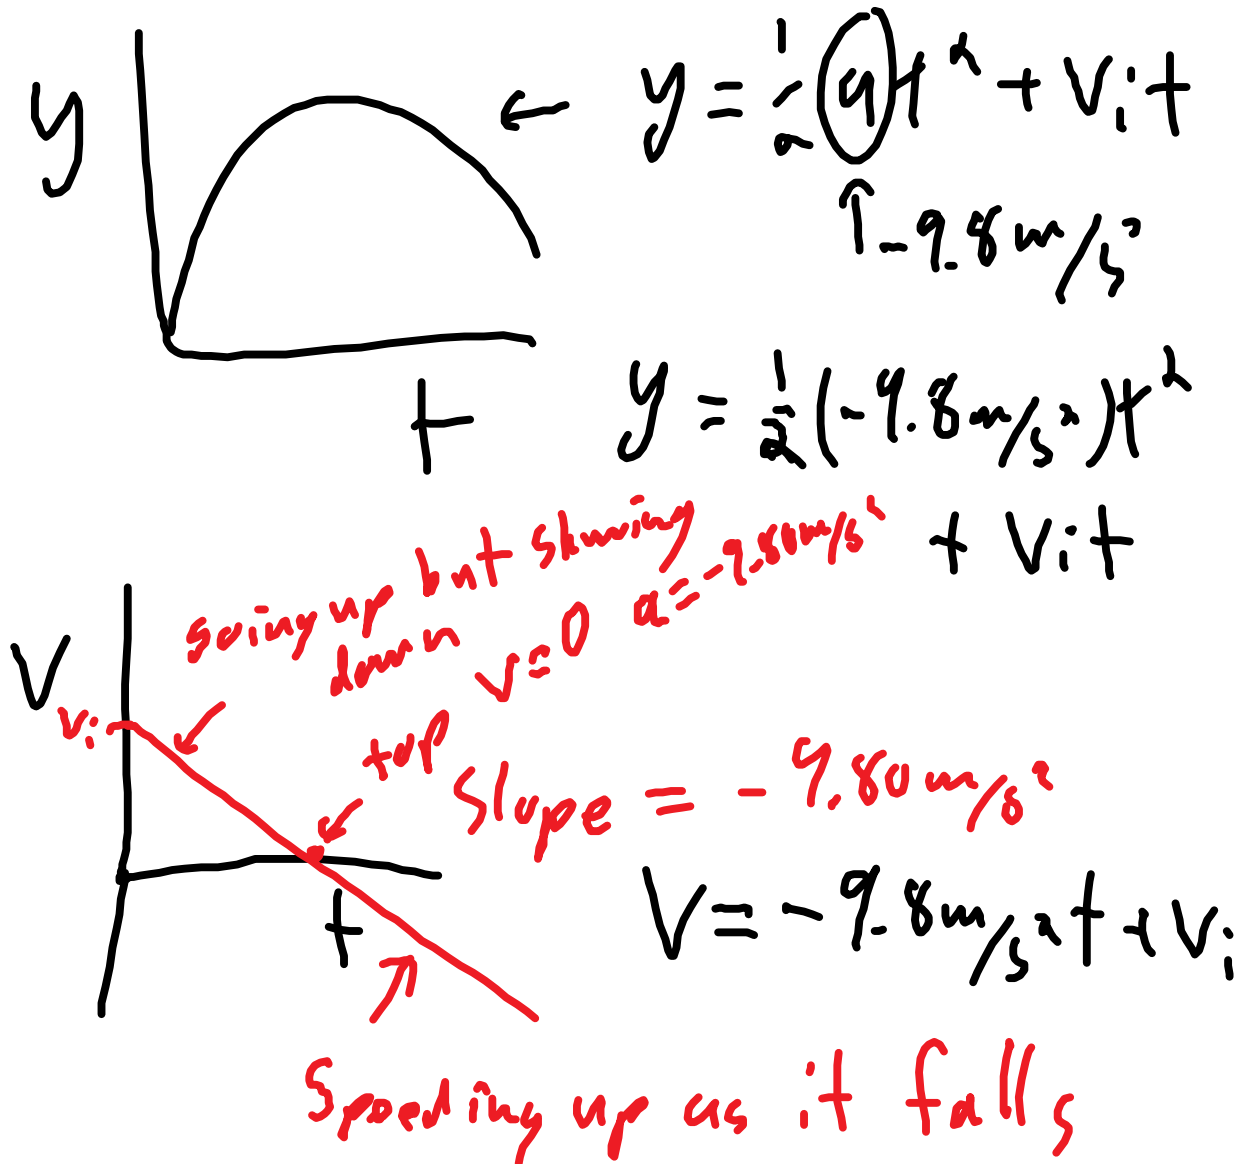 y
y = 1/2 a t² + Vit
-9.8 m/s²
t
y = 1/2 (-9.8 m/s²) t²
+ Vit
going up but slowing
down
v=0 a=-9.80 m/s²
V
vi
top
Slope = -9.80 m/s²
t
V = -9.8 m/s² t + Vi
Speeding up as it falls